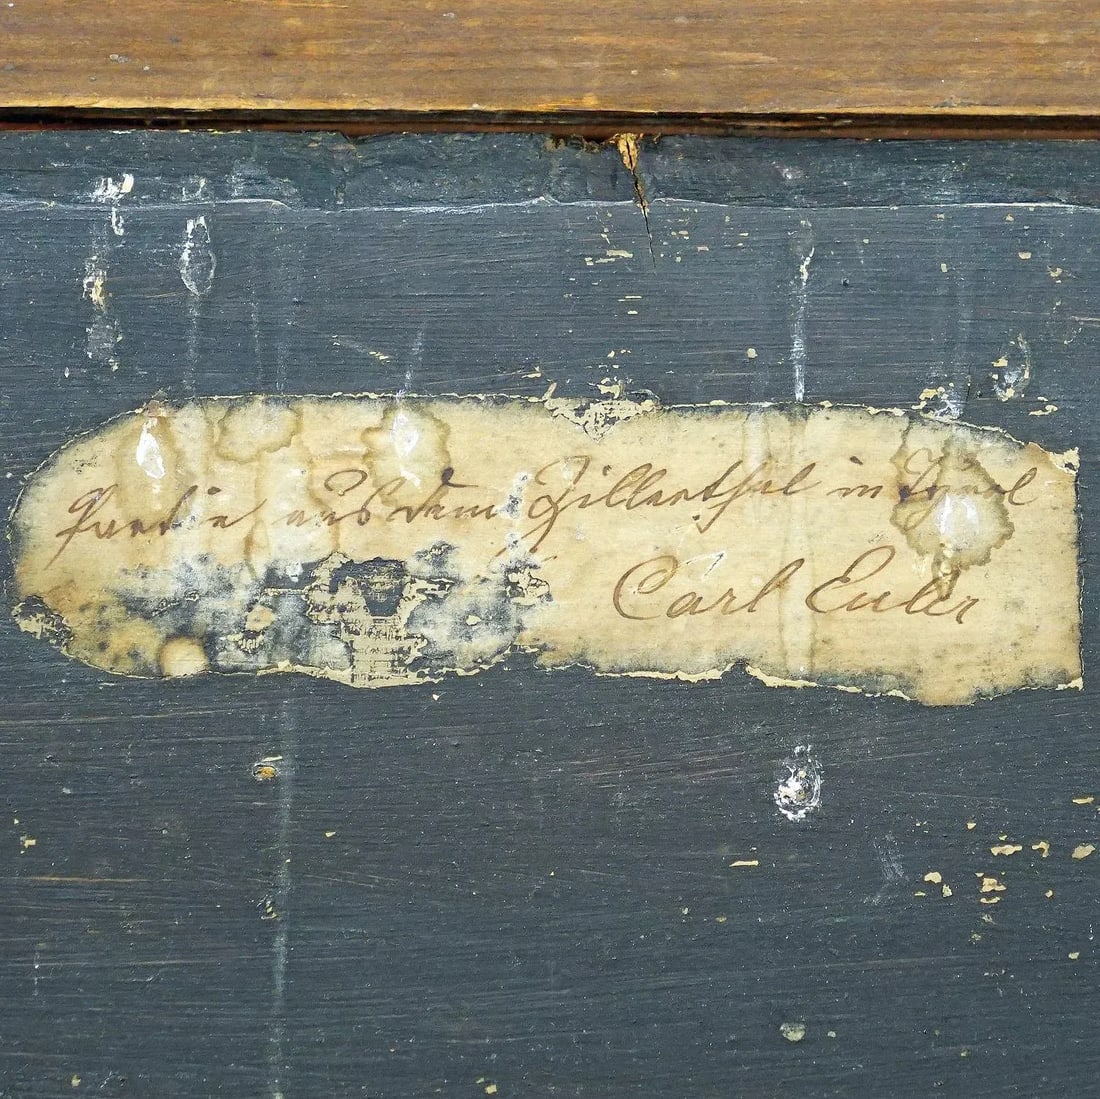 Partie aus dem Zillerthal in Tyrol
Carl Euler